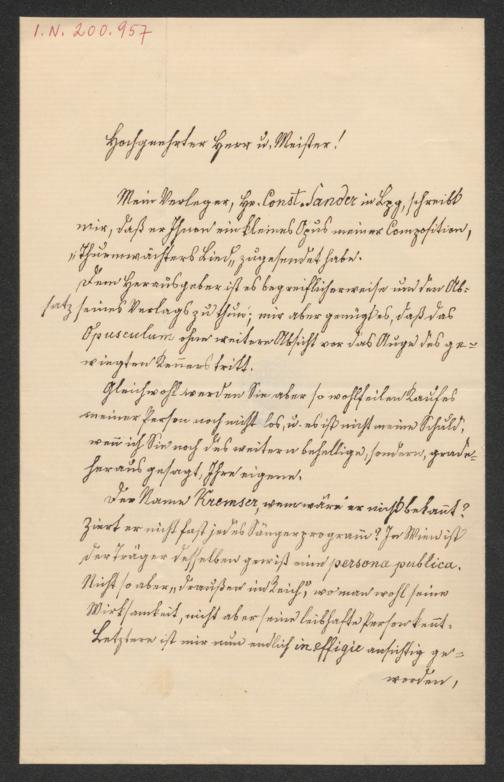 I. N. 200.957
Hochgeehrter Herr u. Meister!
Mein Verleger, Hr. Const. Sander in Lpzg, schreibt
mir, daß er Ihnen ein kleines Opus meiner Composition,
„Thurmwächters Lied„ zugesendet habe.
Dem Herausgeber ist es begreiflicherweise um den Ab-
satz seines Verlags zu thun; mir aber genügt es, daß das
Opusculum ohne weitere Absicht vor das Auge des ge-
wiegten Kenners tritt.
Gleichwohl werden Sie aber so wohlfeilen Kaufes
meiner Person noch nicht los, u. es ist nicht meine Schuld,
weñ ich Sie noch des weitern behellige, sondern, grade-
heraus gesagt, Ihre eigene.
Der Name Kremser, wem wäre er nicht bekañt?
Ziert er nicht fast jedes Sängerprogram̄? In Wien ist
der Träger desselben gewiß eine persona publica.
Nicht so aber „draußen im Reich", wo man wohl seine
Wirksamkeit, nicht aber seine leibhafte Person keñt.
Letztere ist mir nun endlich in effigie ansichtig ge-
worden,